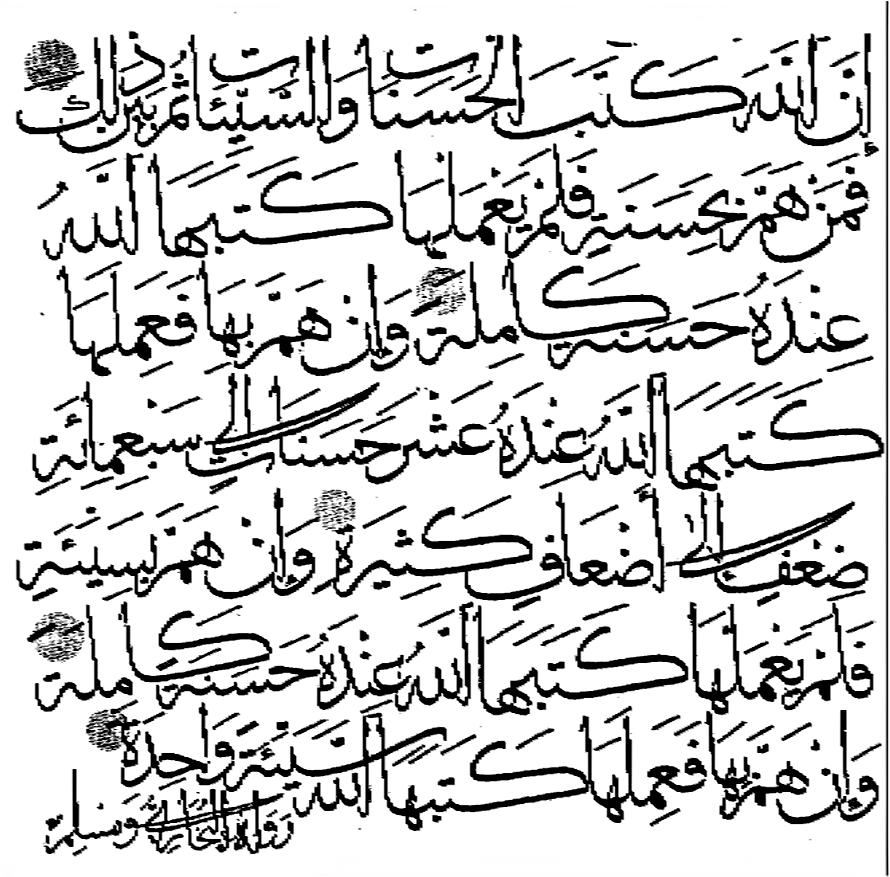 إن الله كتب الحسنات والسيئات ثم بين ذلك
فمن هم بحسنة فلم يعملها كتبها الله
عنده حسنة كاملة وإن هم بها فعملها
كتبها الله عنده عشر حسنات إلى سبعمائة
ضعف إلى أضعاف كثيرة وإن هم بسيئة
فلم يعملها كتبها الله عنده حسنة كاملة
وإن هم بها فعملها كتبها الله سيئة واحدة
رواه البخاري ومسلم